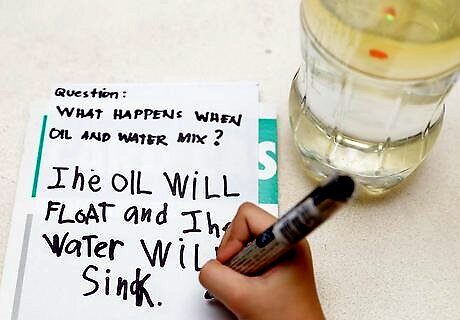 Question:
WHAT HAPPENS WHEN
OIL AND WATER MIX?
Ihe OIL WiLL
FLOAT and Ihe
Water WiL
Sink.
S